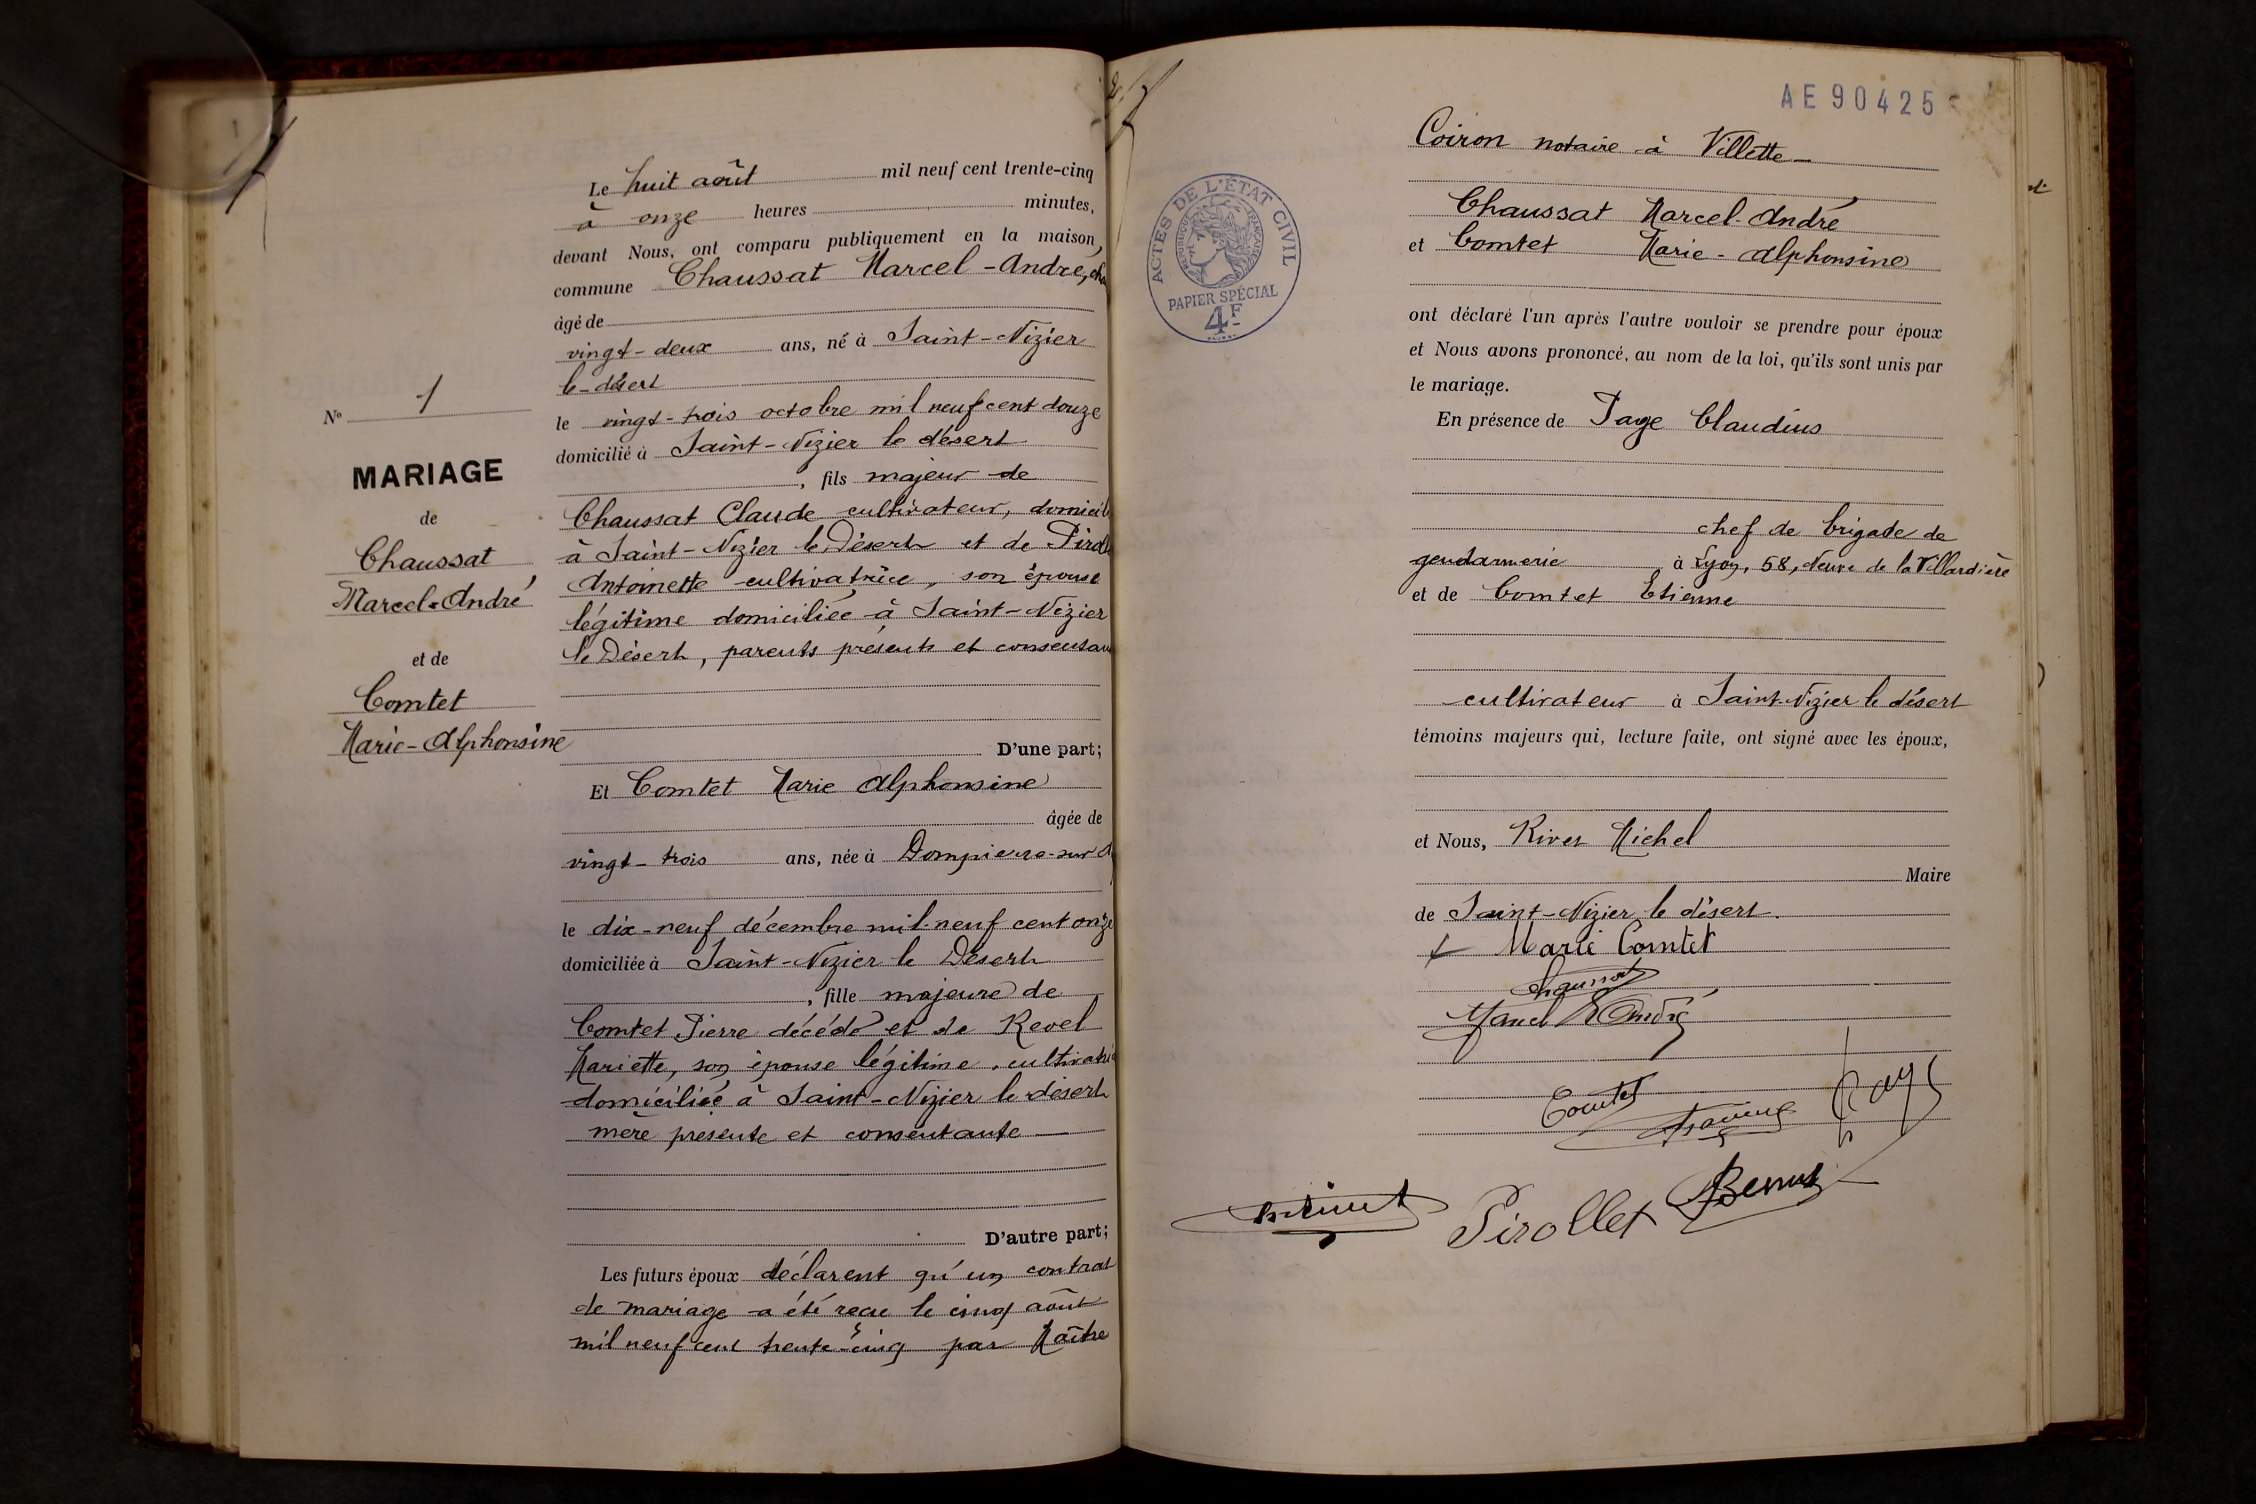 Le huit août mil neuf cent trente-cinq
à onze heures minutes,
devant Nous, ont comparu publiquement en la maison
commune Chaussat Marcel-André,
âgé de
vingt-deux ans, né à Saint-Nizier
le-désert
le vingt-trois octobre mil neuf cent douze
domicilié à Saint-Nizier le désert
, fils majeur de
Chaussat Claude cultivateur, domicil
à Saint-Nizier le Désert et de Piroll
Antoinette cultivatrice, son épouse
légitime domiciliée à Saint-Nizier
le Désert, parents présents et consentan
D'une part;
Et Comtet Marie Alphonsine
âgée de
vingt-trois ans, née à Dompierre-sur
le dix-neuf décembre mil neuf cent onze
domiciliée à Saint-Nizier le Désert
, fille majeure de
Comtet Pierre décédé et de Revel
Mariette, son épouse légitime, cultivatric
domiciliée à Saint-Nizier le désert
mère présente et consentante
D'autre part;
Les futurs époux déclarent qu'un contrat
de mariage a été reçu le cinq août
mil neuf cent trente-cinq par Maître
No 1
MARIAGE
de
Chaussat
Marcel-André
et de
Comtet
Marie-Alphonsine
AE90425
ACTES DE L'ÉTAT CIVIL
RÉPUBLIQUE FRANÇAISE
PAPIER SPÉCIAL
4F
Coiron notaire à Villette
Chaussat Marcel-André
et Comtet Marie-Alphonsine
ont déclaré l'un après l'autre vouloir se prendre pour époux
et Nous avons prononcé, au nom de la loi, qu'ils sont unis par
le mariage.
En présence de Page Claudius
chef de brigade de
gendarmerie à Lyon, 58, de la Villardière
et de Comtet Etienne
cultivateur à Saint-Nizier le désert
témoins majeurs qui, lecture faite, ont signé avec les époux,
et Nous, River Michel
Maire
de Saint-Nizier le désert.
Marie Comtet
Chaussat
Marcel André
Comtet
Page
Pirollet